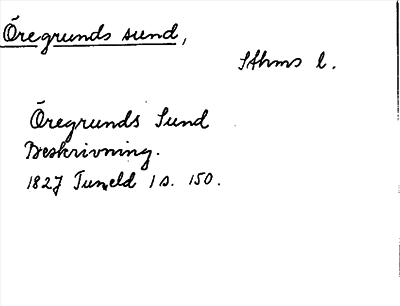 Öregrunds sund,
Sthms l.
Öregrunds Sund
Beskrivning.
1827 Tuneld 1 s. 150.